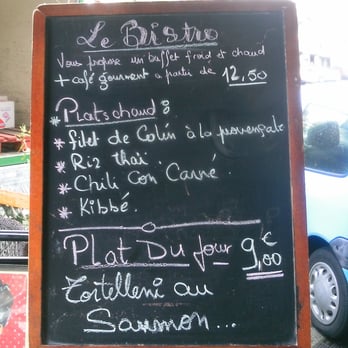 Le Bistro
Vous propose un buffet froid et chaud
+ café gourment a partir de 12,50
* Plats chaud :
* filet de Colin à la provençale
* Riz thaï .
* Chili Con Carné .
* Kibbé .
Plat Du Jour 9,00 €
Tortelleni au
Saumon...